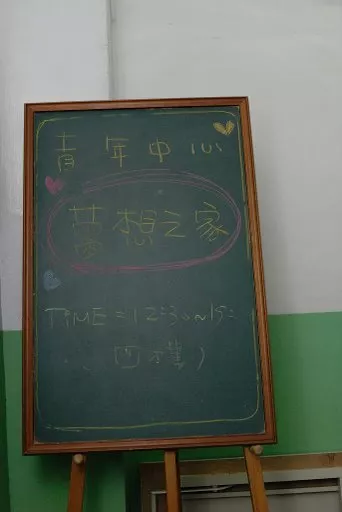 青年中心
夢想之家
TIME=12:30~15:
(四樓)